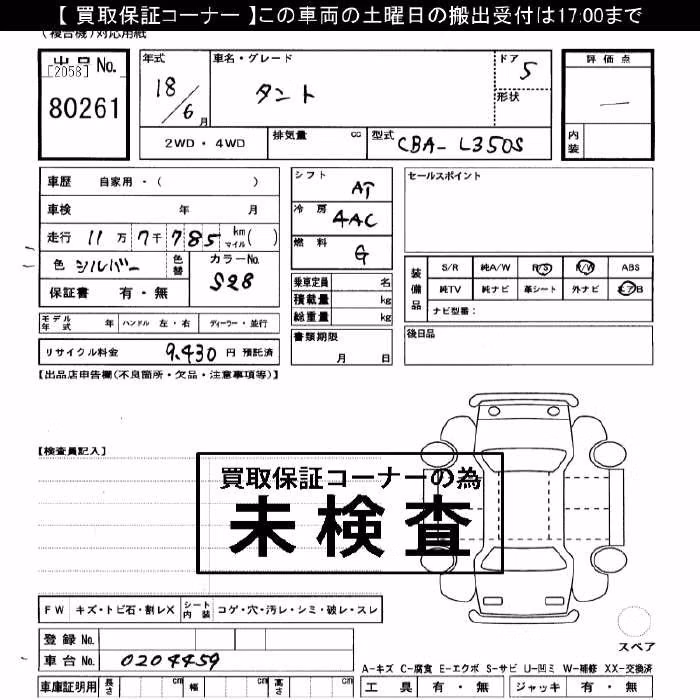 【 買取保証コーナー 】この車両の土曜日の搬出受付は17:00まで
(複合機)対応用紙
出品No.
[2058]
80261
年式
18/6月
車名・グレード
タント
ドア
5
形状
評価点
—
内装
2WD・4WD
排気量 cc
型式 CBA- L350S
車歴 自家用・( )
車検 年 月
走行 11万7千785 km マイル( )
色 シルバー
色替
カラーNo.
S28
保証書 有・無
シフト AT
冷房 4AC
燃料 G
乗車定員 名
積載量 kg
総重量 kg
セールスポイント
装備品
S/R 純A/W P/S P/W ABS
純TV 純ナビ 革シート 外ナビ エアB
ナビ型番:
モデル年式 年 ハンドル 左・右 ディーラー・並行
リサイクル料金 9,430 円 預託済
書類期限
月 日
後日品
【出品店申告欄(不良箇所・欠品・注意事項等)】
【検査員記入】
買取保証コーナーの為
未検査
FW キズ・トビ石・割レX シート内装 コゲ・穴・汚レ・シミ・破レ・スレ
登録No.
車台No. 0204459
スペア
A-キズ C-腐食 E-エクボ S-サビ U-凹ミ W-補修 XX-交換済
車庫証明用 長さ cm 幅 cm 高さ cm
工具 有・無 ジャッキ 有・無